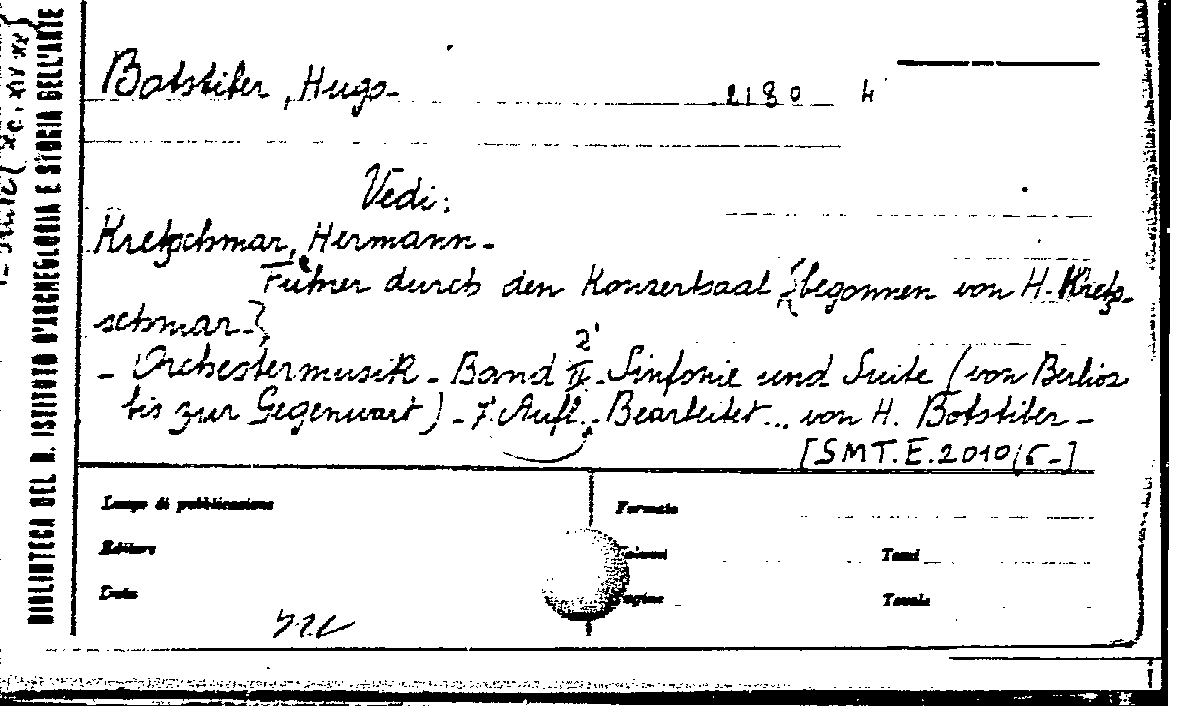 BIBLIOTECA DEL R. ISTITUTO D'ARCHEOLOGIA E STORIA DELL'ARTE
Botstiber, Hugo-
2180 4
Vedi:
Kretzschmar, Hermann-
Führer durch den Konzertsaal {begonnen von H. Kretz-
schmar-}
- Orchestermusik - Band II 2' - Sinfonie und Suite (von Berlioz
bis zur Gegenwart) - 7. Aufl. - Bearbeitet... von H. Botstiber -
[SMT.E.2010/5-]
Luogo di pubblicazione
Formato
Editore
Volumi
Tomi
Data
Pagine
Tavole